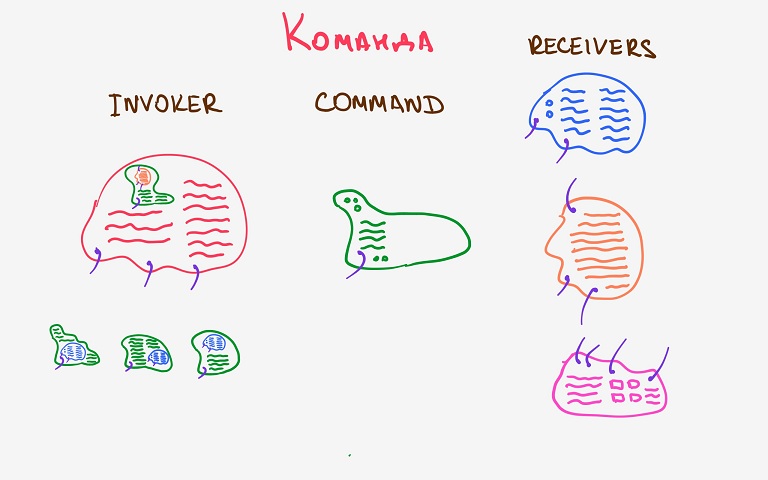 Команда
INVOKER
COMMAND
RECEIVERS